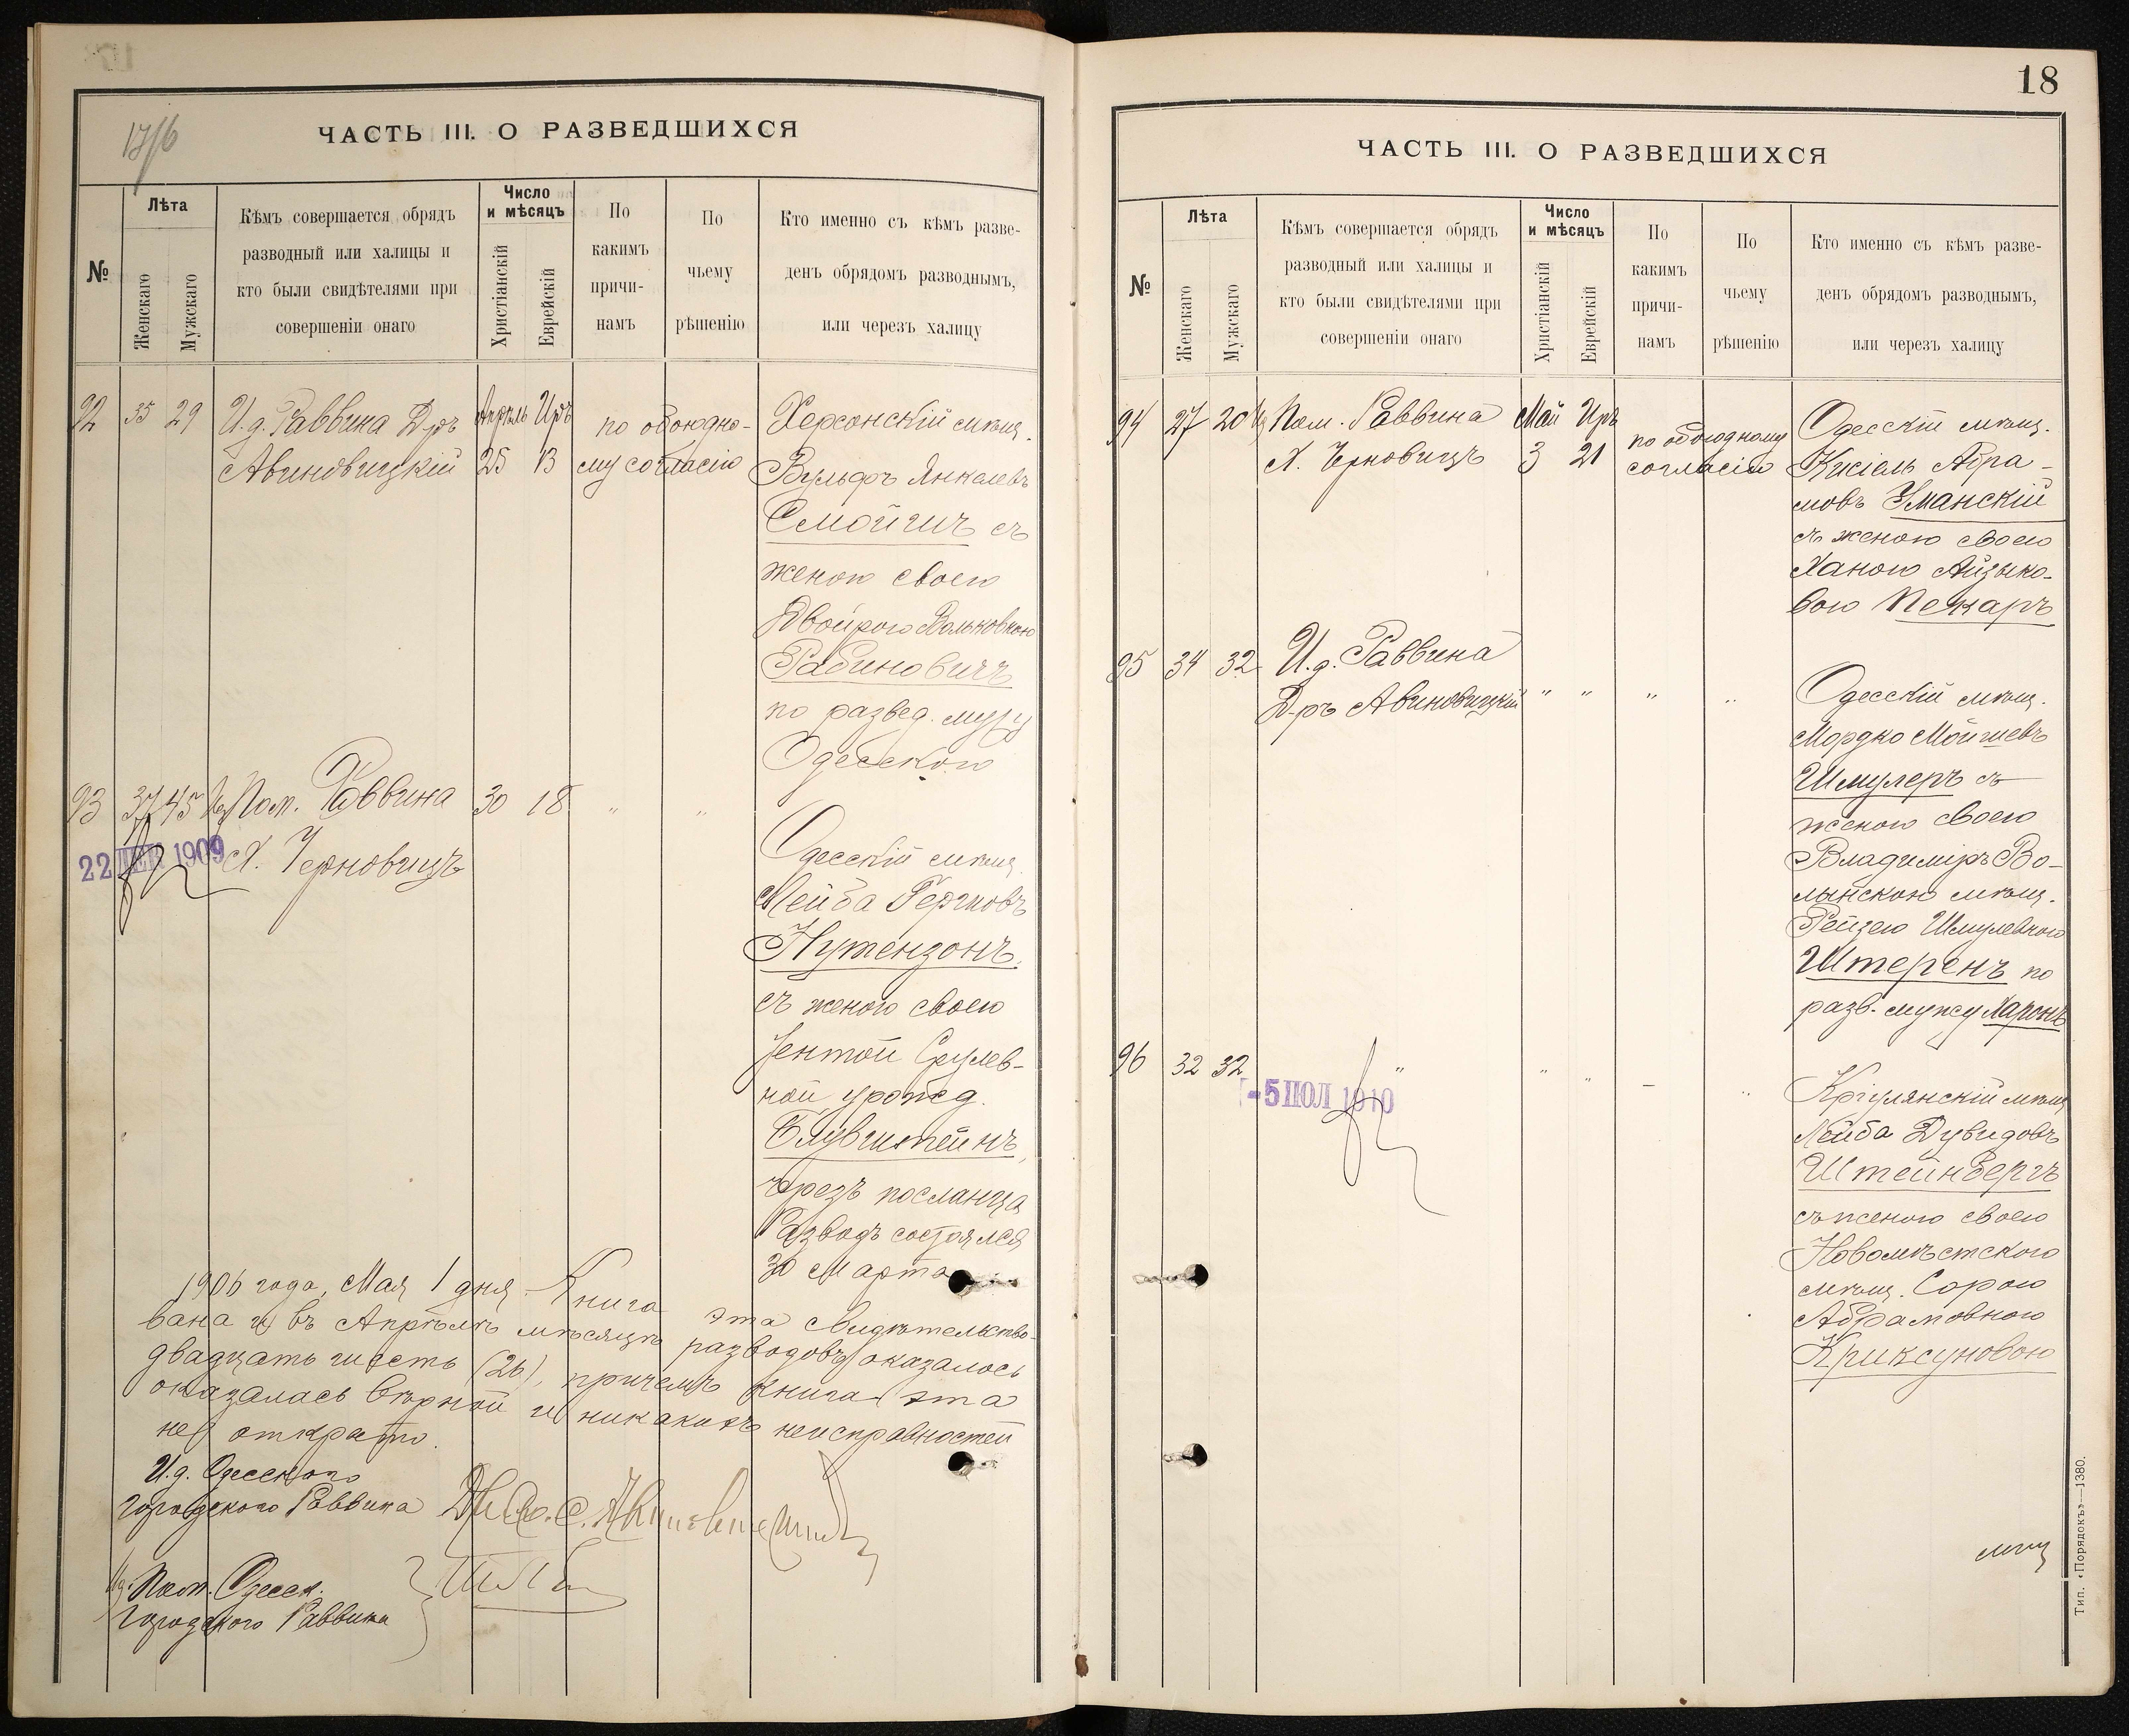 17/6
ЧАСТЬ III. О РАЗВЕДШИХСЯ
№
Лѣта
Женскаго
Мужскаго
Кѣмъ совершается обрядъ
разводный или халицы и
кто были свидѣтелями при
совершеніи онаго
Число
и мѣсяцъ
Христіанскій
Еврейскій
По
какимъ
причи-
намъ
По
чьему
рѣшенію
Кто именно съ кѣмъ разве-
денъ обрядомъ разводнымъ,
или черезъ халицу
92 35 29
И.д. Раввина Д-ръ
Авиновицкій
Апрѣль Иръ
25 13
по обоюдно-
му согласію
Херсонскій мѣщ.
Вульфъ Янкелевъ
Смойшъ съ
женою своею
Двойрою Вольковною
Рабиновичъ
по развед. мужу
Одесского
93 37 45
Пом. Раввина
Х. Черновицъ
30 18 " "
22 ДЕК 1909
Одесскій мѣщ.
Лейба Гершковъ
Нутензонъ
съ женою своею
Ентой Срулев-
ной урожд.
Блувштейнъ,
чрезъ посланца
Разводъ состоялся
30 Марта
1906 года, Мая 1 дня. Книга эта свидѣтельство-
вана и въ Апрѣлѣ мѣсяцѣ разводовъ оказалось
двадцать шесть (26), причемъ книга эта
оказалась вѣрной и никакихъ неисправностей
не открыто.
И.д. Одесского
Городского Раввина
Пом. Одесск.
Городского Раввина
18
ЧАСТЬ III. О РАЗВЕДШИХСЯ
№
Лѣта
Женскаго
Мужскаго
Кѣмъ совершается обрядъ
разводный или халицы и
кто были свидѣтелями при
совершеніи онаго
Число
и мѣсяцъ
Христіанскій
Еврейскій
По
какимъ
причи-
намъ
По
чьему
рѣшенію
Кто именно съ кѣмъ разве-
денъ обрядомъ разводнымъ,
или черезъ халицу
94 27 20
Пом. Раввина
Х. Черновицъ
Май Иръ
3 21
по обоюдному
согласію
Одесскій мѣщ.
Кисіель Абра-
мовъ Уманскій
съ женою своею
Ханою Айзыко-
вою Пекаръ
95 34 32
И.д. Раввина
Д-ръ Авиновицкій
" " " "
Одесскій мѣщ.
Мордко Мойшевъ
Шмулеръ съ
женою своею
Владиміръ Во-
лынскою мѣщ.
Рейзею Шмулевною
Штеренъ по
разв. мужу Харонъ
96 32 32 " " " — "
-5 ІЮЛ 1910
Кріулянскій мѣщ.
Лейба Дувидовъ
Штейнбергъ
съ женою своею
Новомѣстского
мѣщ. Сорою
Абрамовною
Криксуновою
мѣщ
Тип. «Порядокъ»—1380.